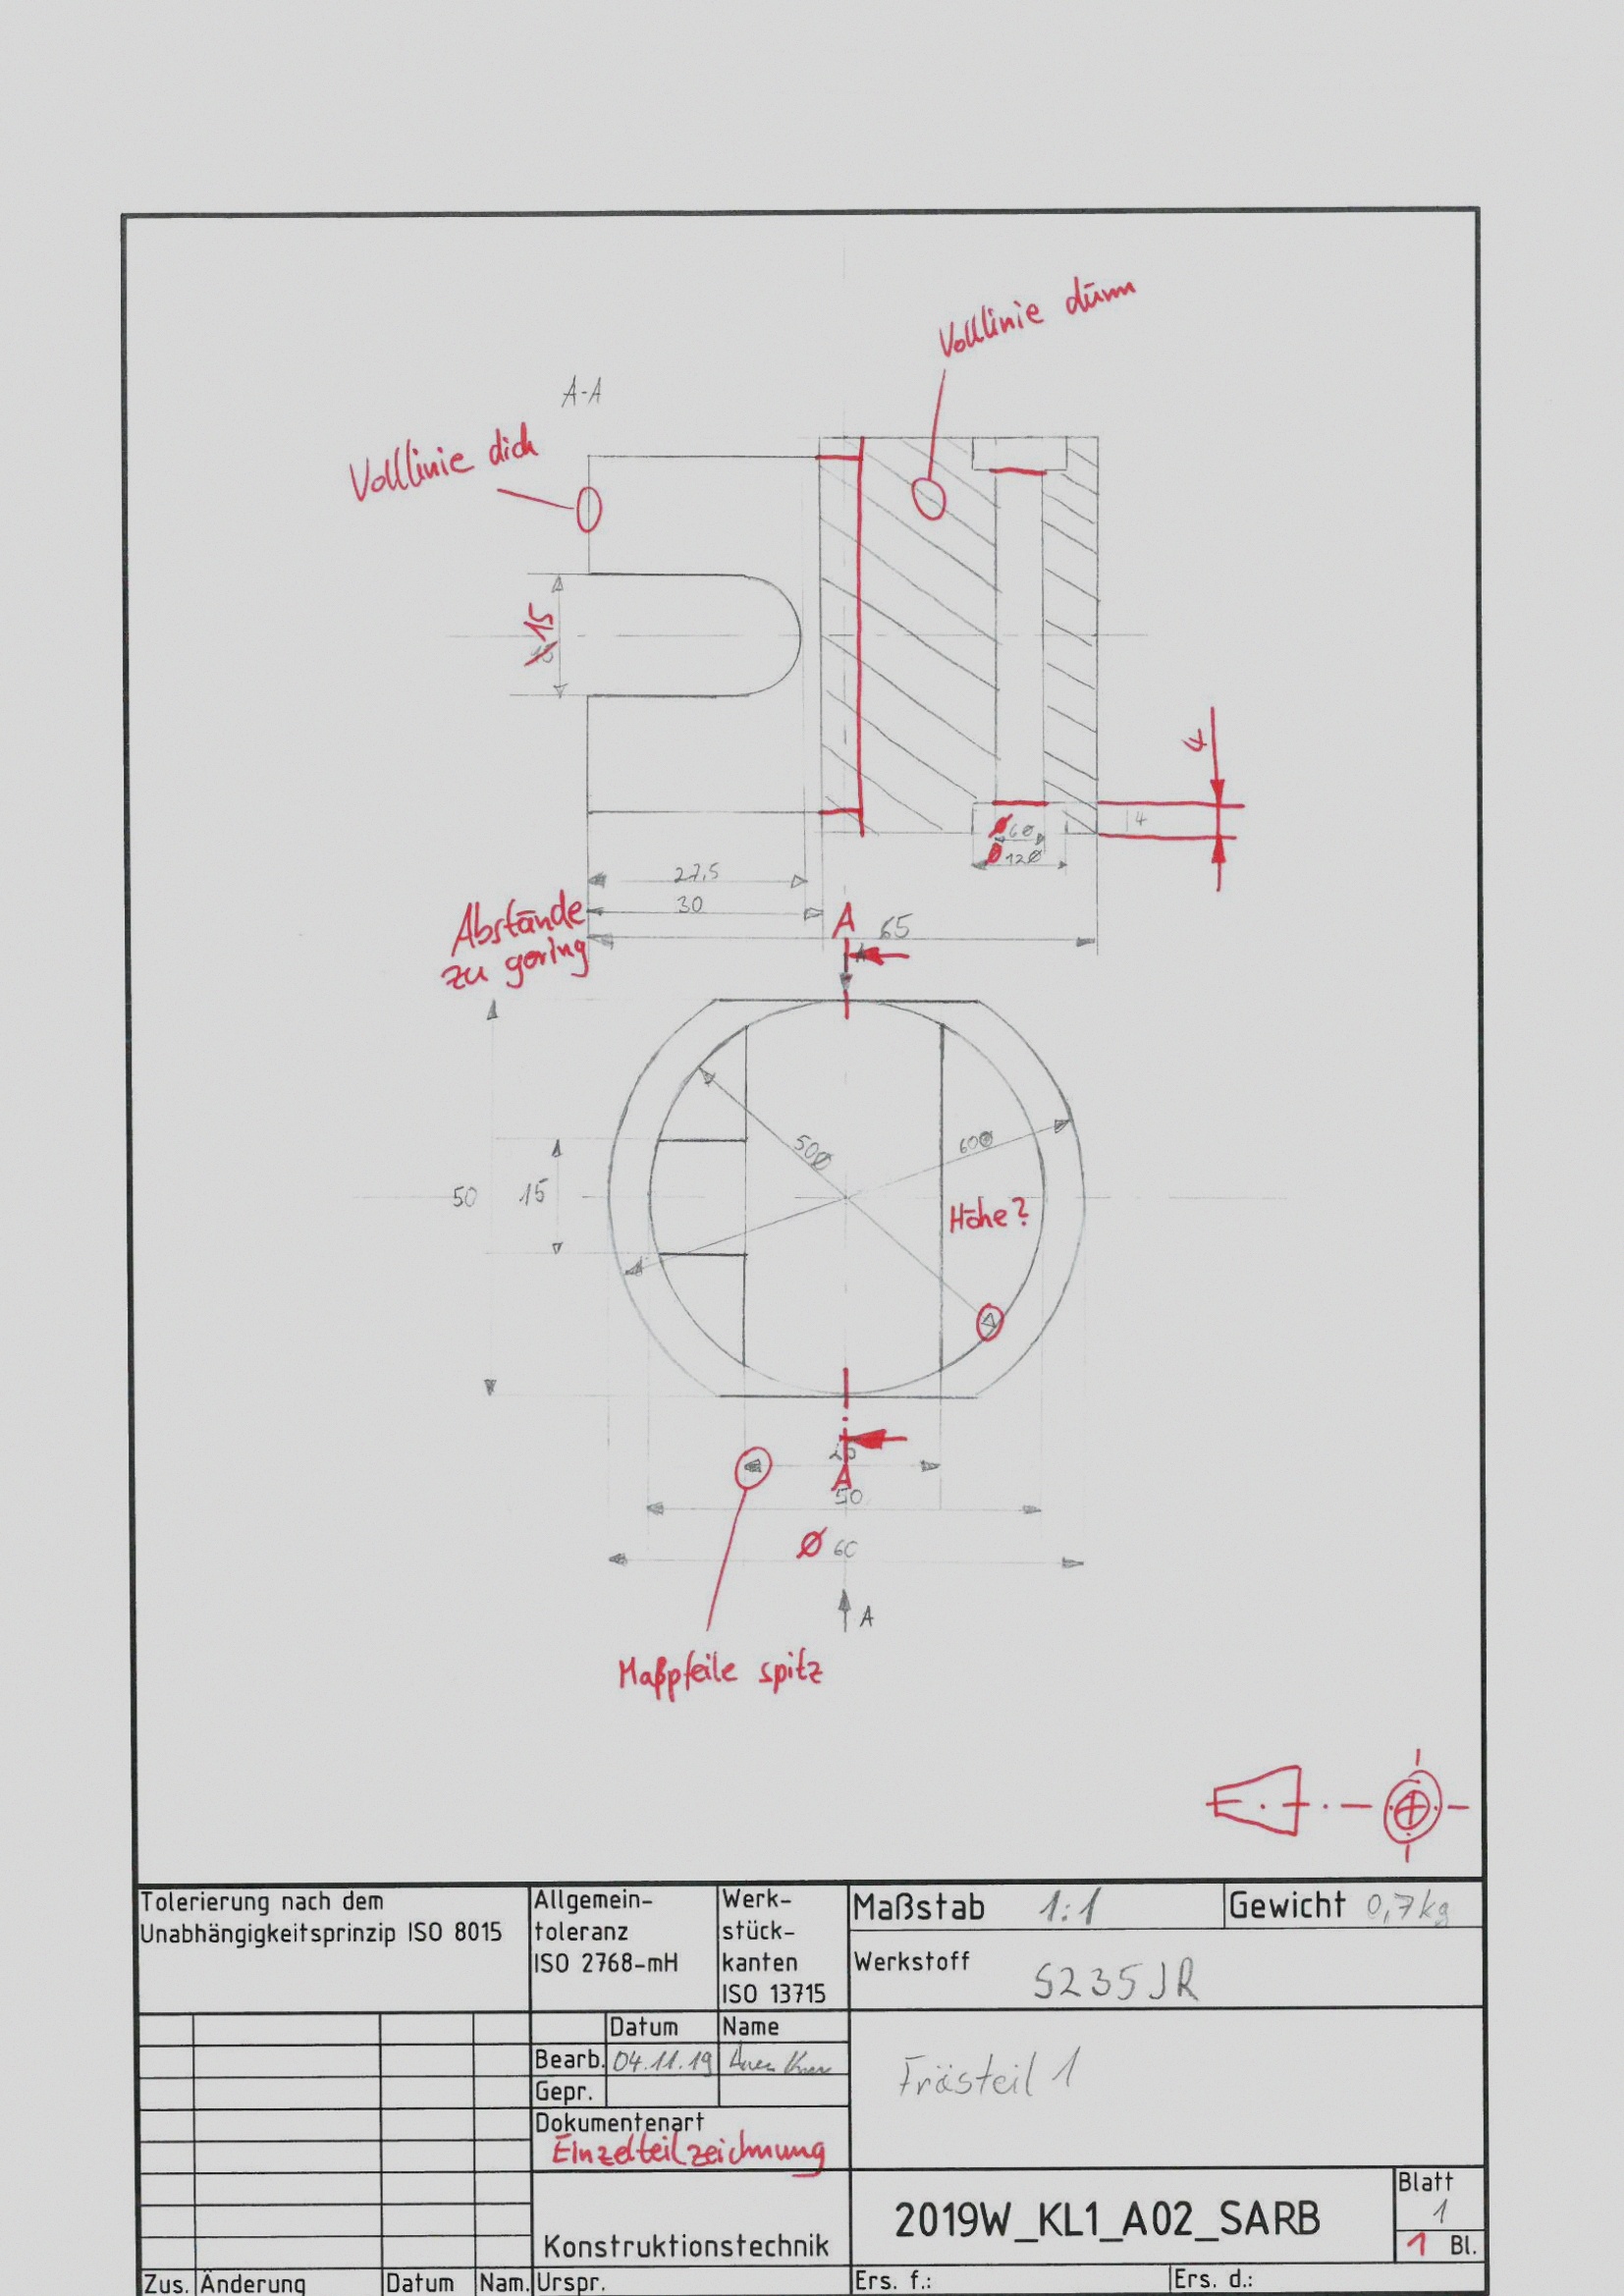 Vollinie dünn
A-A
Vollinie dick
15
4
4
Ø 6Ø
Ø 12Ø
27,5
30
Abstände
zu gering
A
65
50Ø
60Ø
50
15
Höhe?
A
50
Ø 60
A
Maßpfeile spitz
Tolerierung nach dem
Unabhängigkeitsprinzip ISO 8015
Allgemein-
toleranz
ISO 2768-mH
Werk-
stück-
kanten
ISO 13715
Maßstab 1:1
Gewicht 0,7kg
Werkstoff S235JR
Datum Name
Bearb. 04.11.19
Gepr.
Frästeil 1
Dokumentenart
Einzelteilzeichnung
Konstruktionstechnik
2019W_KL1_A02_SARB
Blatt
1
1 Bl.
Zus. Änderung Datum Nam. Urspr. Ers. f.: Ers. d.: